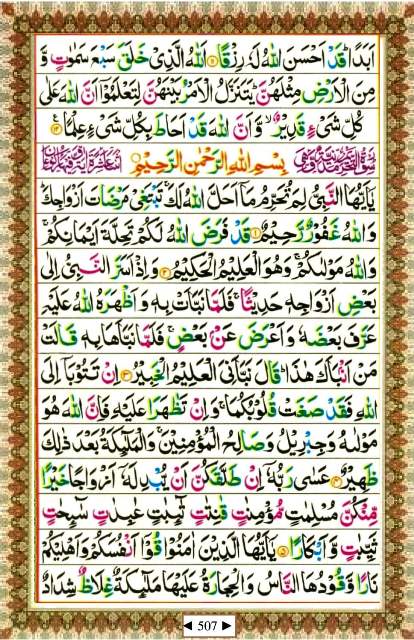 اَبَدًا ؕ قَدْ اَحْسَنَ اللّٰهُ لَهٗ رِزْقًا ﴿۱۱﴾ اَللّٰهُ الَّذِیْ خَلَقَ سَبْعَ سَمٰوٰتٍ وَّ
مِنَ الْاَرْضِ مِثْلَهُنَّ ؕ یَتَنَزَّلُ الْاَمْرُ بَیْنَهُنَّ لِتَعْلَمُوْۤا اَنَّ اللّٰهَ عَلٰی
كُلِّ شَیْءٍ قَدِیْرٌ ۙ وَّ اَنَّ اللّٰهَ قَدْ اَحَاطَ بِكُلِّ شَیْءٍ عِلْمًا ﴿۱۲﴾
بِسْمِ اللّٰهِ الرَّحْمٰنِ الرَّحِیْمِ
یٰۤاَیُّهَا النَّبِیُّ لِمَ تُحَرِّمُ مَاۤ اَحَلَّ اللّٰهُ لَكَ ۚ تَبْتَغِیْ مَرْضَاتَ اَزْوَاجِكَ ؕ
وَ اللّٰهُ غَفُوْرٌ رَّحِیْمٌ ﴿۱﴾ قَدْ فَرَضَ اللّٰهُ لَكُمْ تَحِلَّةَ اَیْمَانِكُمْ ۚ
وَ اللّٰهُ مَوْلٰىكُمْ ۚ وَ هُوَ الْعَلِیْمُ الْحَكِیْمُ ﴿۲﴾ وَ اِذْ اَسَرَّ النَّبِیُّ اِلٰی
بَعْضِ اَزْوَاجِهٖ حَدِیْثًا ۚ فَلَمَّا نَبَّاَتْ بِهٖ وَ اَظْهَرَهُ اللّٰهُ عَلَیْهِ
عَرَّفَ بَعْضَهٗ وَ اَعْرَضَ عَنْۢ بَعْضٍ ۚ فَلَمَّا نَبَّاَهَا بِهٖ قَالَتْ
مَنْ اَنْۢبَاَكَ هٰذَا ؕ قَالَ نَبَّاَنِیَ الْعَلِیْمُ الْخَبِیْرُ ﴿۳﴾ اِنْ تَتُوْبَاۤ اِلَی
اللّٰهِ فَقَدْ صَغَتْ قُلُوْبُكُمَا ۚ وَ اِنْ تَظٰهَرَا عَلَیْهِ فَاِنَّ اللّٰهَ هُوَ
مَوْلٰىهُ وَ جِبْرِیْلُ وَ صَالِحُ الْمُؤْمِنِیْنَ ۚ وَ الْمَلٰٓىِٕكَةُ بَعْدَ ذٰلِكَ
ظَهِیْرٌ ﴿۴﴾ عَسٰی رَبُّهٗۤ اِنْ طَلَّقَكُنَّ اَنْ یُّبْدِلَهٗۤ اَزْوَاجًا خَیْرًا
مِّنْكُنَّ مُسْلِمٰتٍ مُّؤْمِنٰتٍ قٰنِتٰتٍ تٰٓىِٕبٰتٍ عٰبِدٰتٍ سٰٓىِٕحٰتٍ
ثَیِّبٰتٍ وَّ اَبْكَارًا ﴿۵﴾ یٰۤاَیُّهَا الَّذِیْنَ اٰمَنُوْا قُوْۤا اَنْفُسَكُمْ وَ اَهْلِیْكُمْ
نَارًا وَّ قُوْدُهَا النَّاسُ وَ الْحِجَارَةُ عَلَیْهَا مَلٰٓىِٕكَةٌ غِلَاظٌ شِدَادٌ
◄ 507 ►